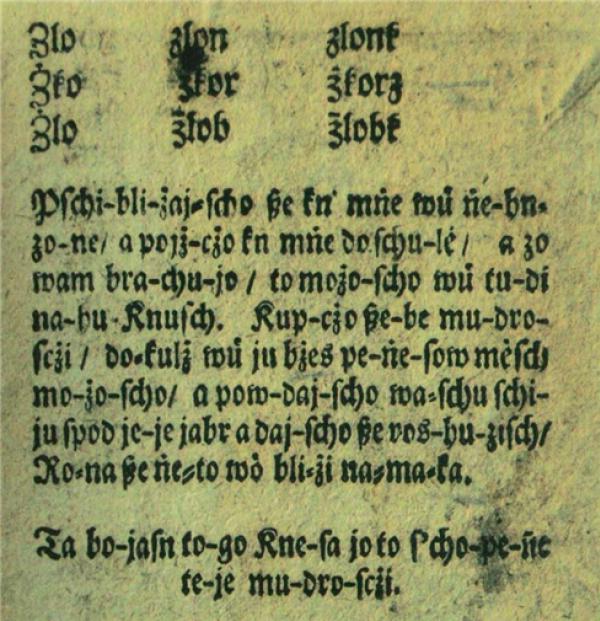 Zlo zlon zlonk
Zko żkor żkorz
Zlo żlob żlobk
Pſchi-bli-żaj-ſcho ße kn' mńe wű ńe-hu-
żo-ne/ a pojż-cżo kn mńe do ſchu-lé/ a żo
wam bra-chu-jo / to możo-ſcho wű tu-di
na-hu-Knuſch. Kup-cżo ße-be mu-dro-
ſcżi / do-kulż wű ju bżes pe-ńe-ſow mėſch
mo-żo-ſcho/ a pow-daj-ſcho wa-ſchu ſchi-
ju ſpod je-je jabr a daj-ſcho ße ros-hu-ziſch/
Ro-na ße ńe-to wò bli-żi na-ma-ka.
Ta bo-jaſn to-go Kne-ſa jo to Scho-pe-ńe
te-je mu-dro-ſcżi.